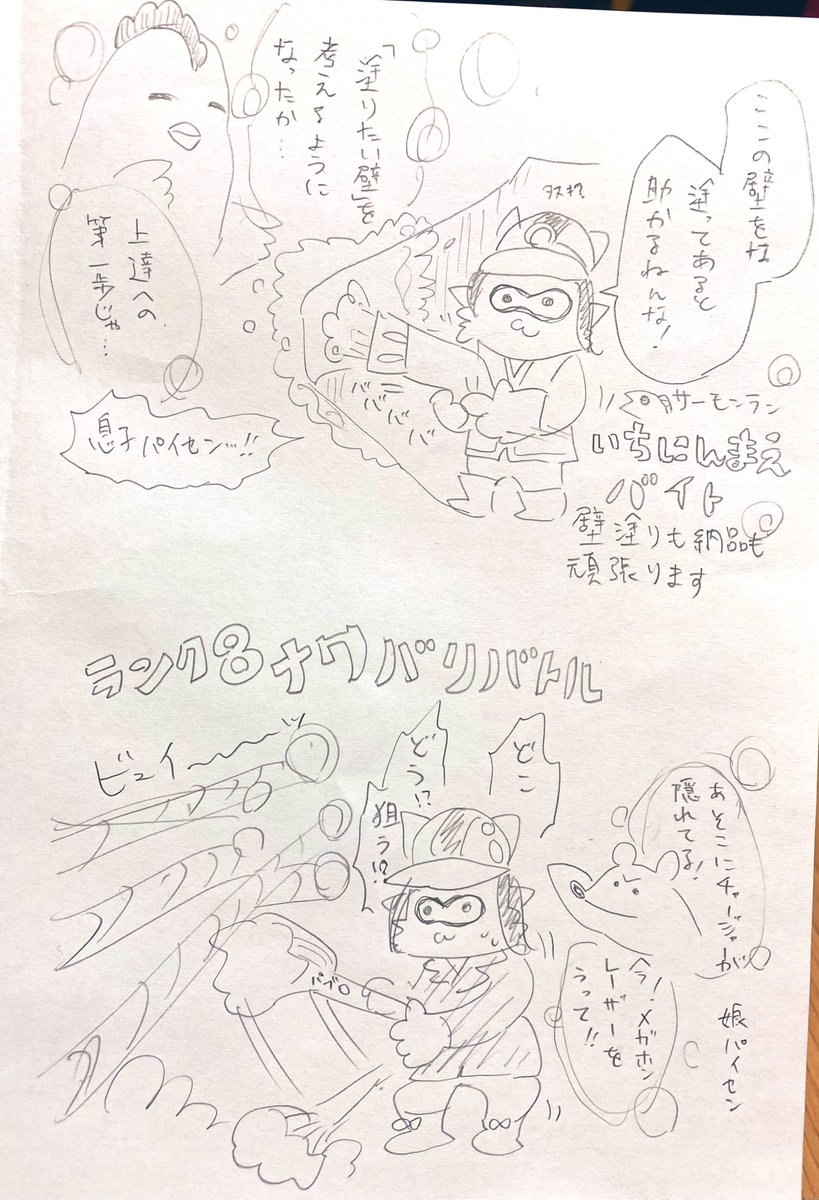 ここの壁をな
塗ってあると
助かるねんな!
「塗りたい壁」を
考えるように
なったか…
上達への
第一歩じゃ…
息子パイセンッ!!
ババババババ
サーモンラン
いちにんまえ
バイト
壁塗りも納品も
頑張ります
ランク8ナワバリバトル
ビュイ〜〜〜ッ
あそこにチャージャーが
隠れてる!
今!メガホン
レーザーを
うって!!
娘パイセン
どこ
どう!?
狙う!?
パブロ